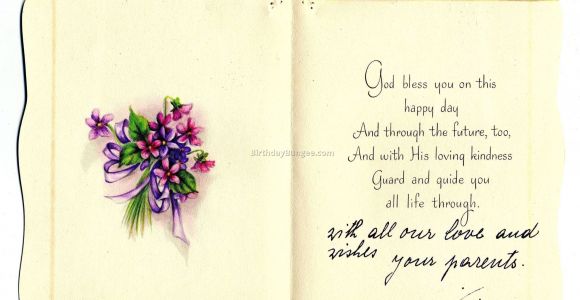 BirthdayBungee.com
God bless you on this
happy day
And through the future, too,
And with His loving kindness
Guard and guide you
all life through.
with all our love and
wishes your parents.